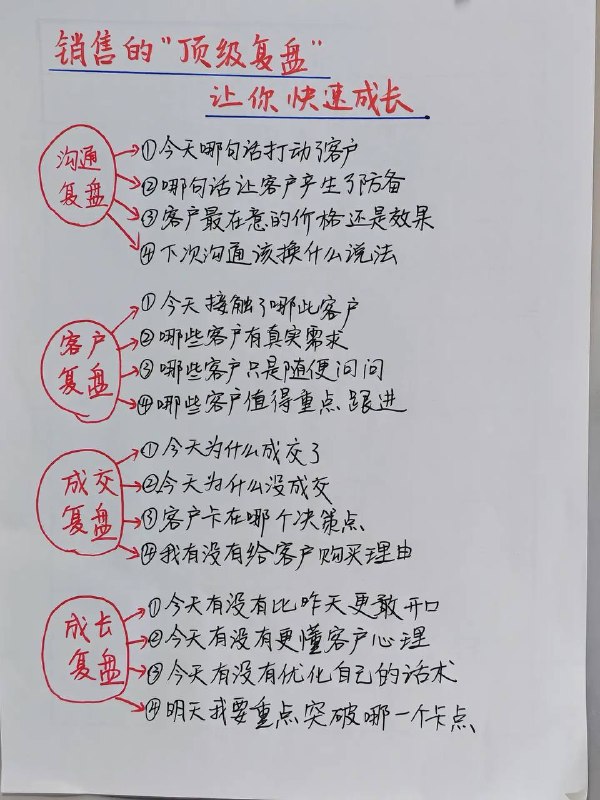 销售的"顶级复盘"
让你快速成长
沟通
复盘
①今天哪句话打动了客户
②哪句话让客户产生了防备
③客户最在意的价格还是效果
④下次沟通该换什么说法
客户
复盘
①今天接触了哪此客户
②哪些客户有真实需求
③哪些客户只是随便问问
④哪些客户值得重点跟进
成交
复盘
①今天为什么成交了
②今天为什么没成交
③客户卡在哪个决策点
④我有没有给客户购买理由
成长
复盘
①今天有没有比昨天更敢开口
②今天有没有更懂客户心理
③今天有没有优化自己的话术
④明天我要重点突破哪一个卡点